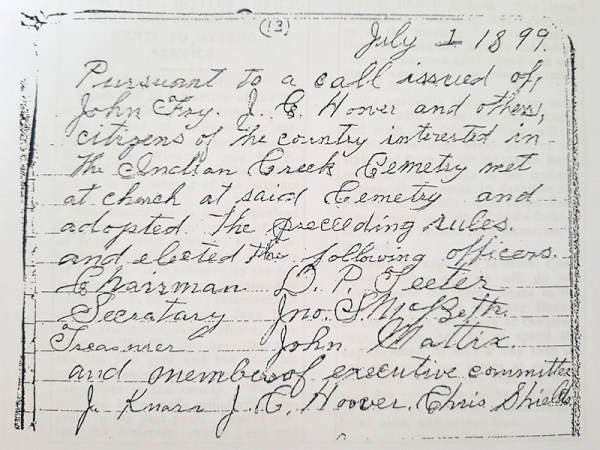 (13)
July 1 1899.
Pursuant to a call issued of,
John Foy. J. C. Hoover and others,
citizens of the country interested in
the Indian Creek Cemetry met
at church at said Cemetry and
adopted the preceeding rules.
and elected the following officers.
Chairman D. P. Teeter
Secratary Jno. S. McBeth.
Treasurer John Mattix.
and members of executive committee
J. Knarr J. C. Hoover, Chris Shields